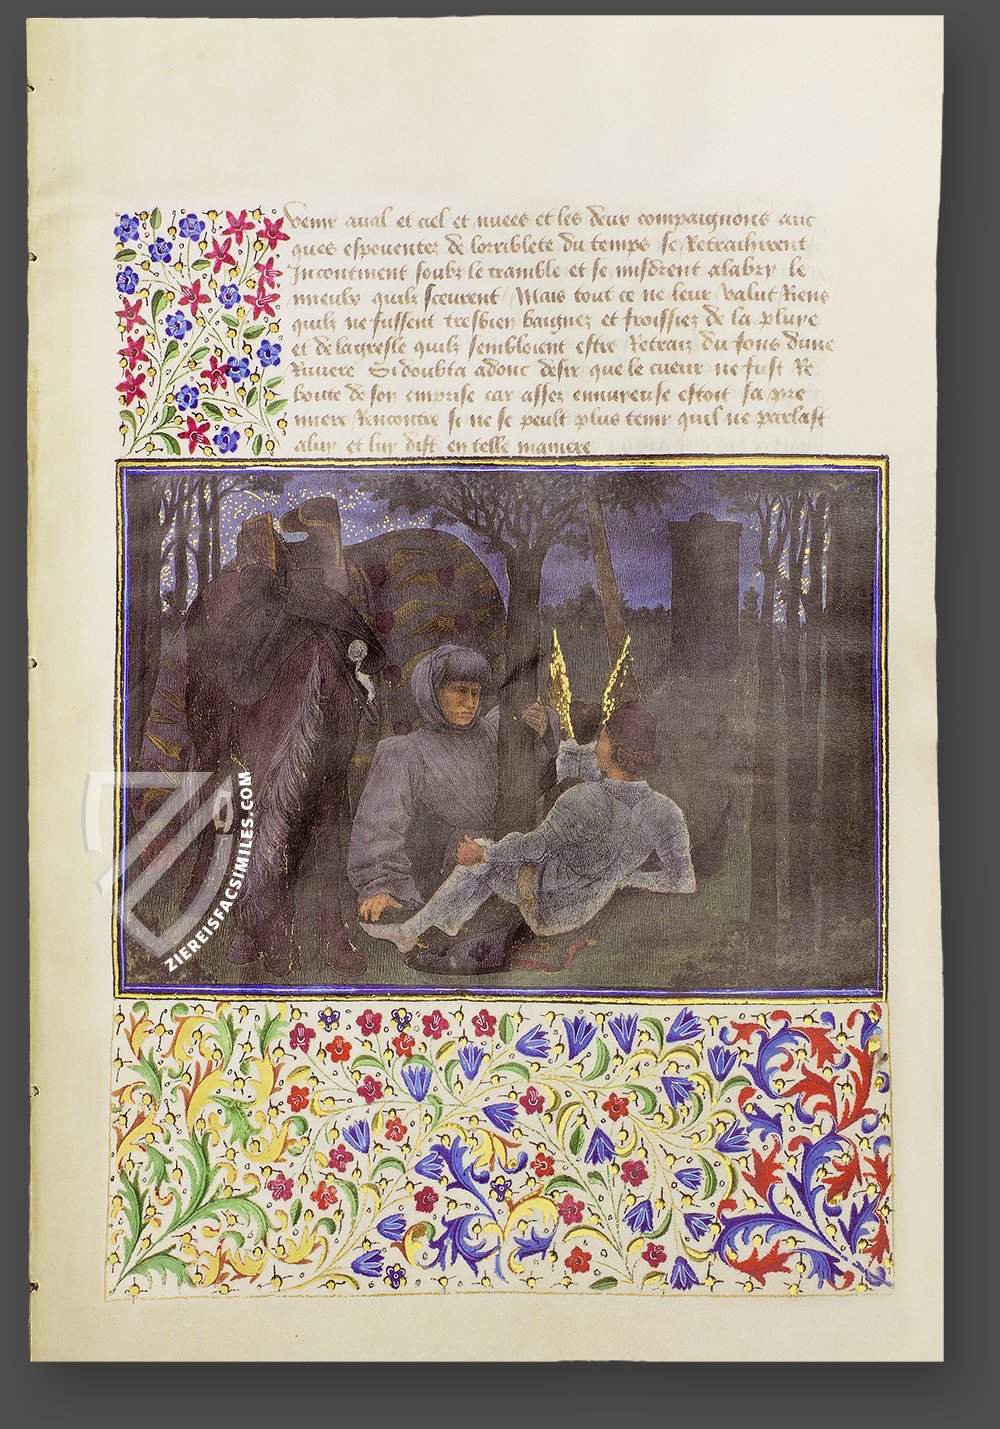 venir aual et ciel et nuees et les deux compaignons auc
ques espeuentez de lorriblete du temps se Retrairent
Incontinent soubz le tramble et se misdrent alabry le
mieulx quilz sceurent / Mais tout ce ne leur valut Riens
quilz ne fussent tresbien baignez et froissiez de la pluye
et de la gresle quilz sembloient estre Retraiz du fons dune
Riuiere Si doubta adonc desir que le cueur ne fust Re
boute de son emprise car assez ennuyeuse estoit sa pre
miere Rencontre si ne se peult plus tenir quil ne parlast
aluy et luy dist en telle maniere
ZIEREISFACSIMILES.COM